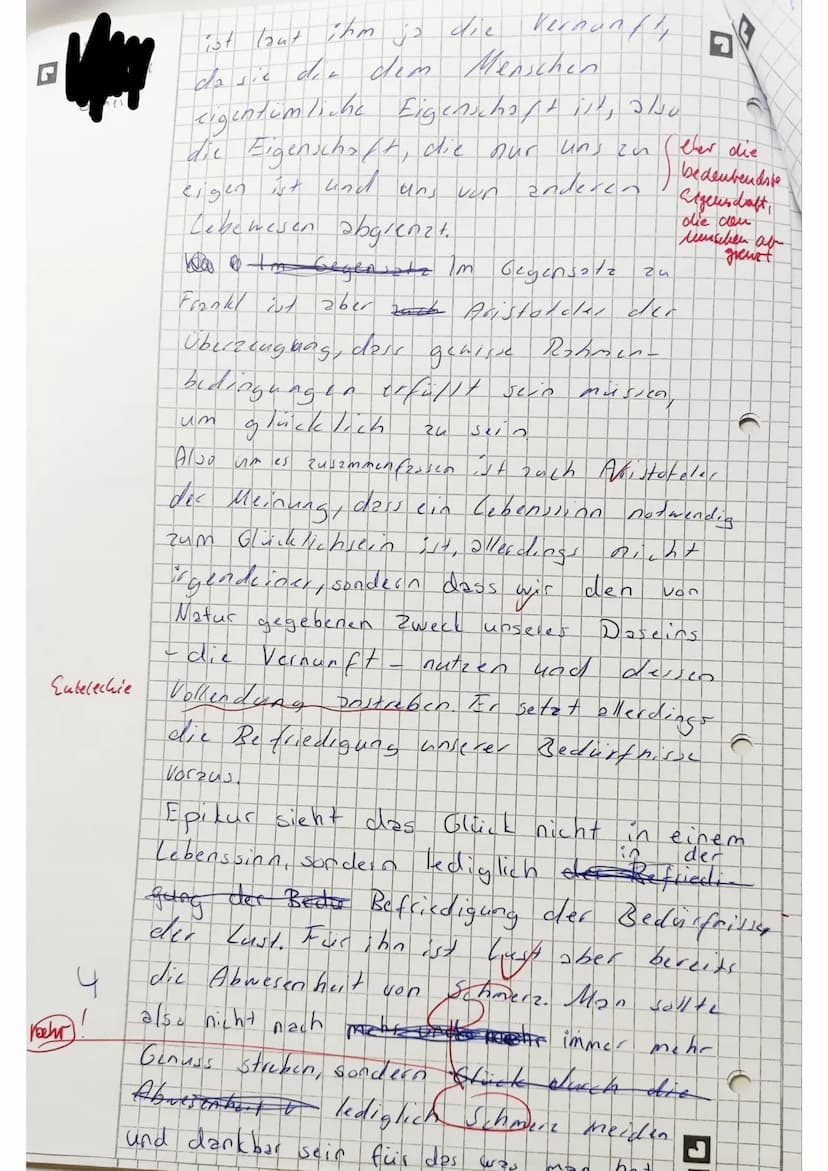 ist laut ihm ja die Vernunft,
da sie die dem Menschen
eigentümliche Eigenschaft ist, also
die Eigenschaft, die nur uns zu
eigen ist und uns von anderen
Lebewesen abgrenzt.
eher die
bedeutendste
Eigenschaft,
die den
Menschen ab-
grenzt
Im Gegensatz Im Gegensatz zu
Frankl ist aber auch Aristoteles der
Überzeugung, dass gewisse Rahmen-
bedingungen erfüllt sein müssen,
um glücklich zu sein.
Also um es zusammenfassen ist auch Aristoteles
der Meinung, dass ein Lebenssinn notwendig
zum Glücklichsein ist, allerdings nicht
irgendeiner, sondern dass wir den von
Natur gegebenen Zweck unseres Daseins
- die Vernunft - nutzen und dessen
Entelechie
Vollendung anstreben. Er setzt allerdings
die Befriedigung unserer Bedürfnisse
voraus.
Epikur sieht das Glück nicht in einem
in der
Lebenssinn, sondern lediglich der Befriedi-
gung der Bedü Befriedigung der Bedürfnisse,
der Lust. Für ihn ist Lust aber bereits
4
die Abwesenheit von Schmerz. Man sollte
also nicht nach mehr und mehr immer mehr
!
Genuss streben, sondern Glück durch die
Abwesenheit lediglich Schmerz meiden
und dankbar sein für das was man hat